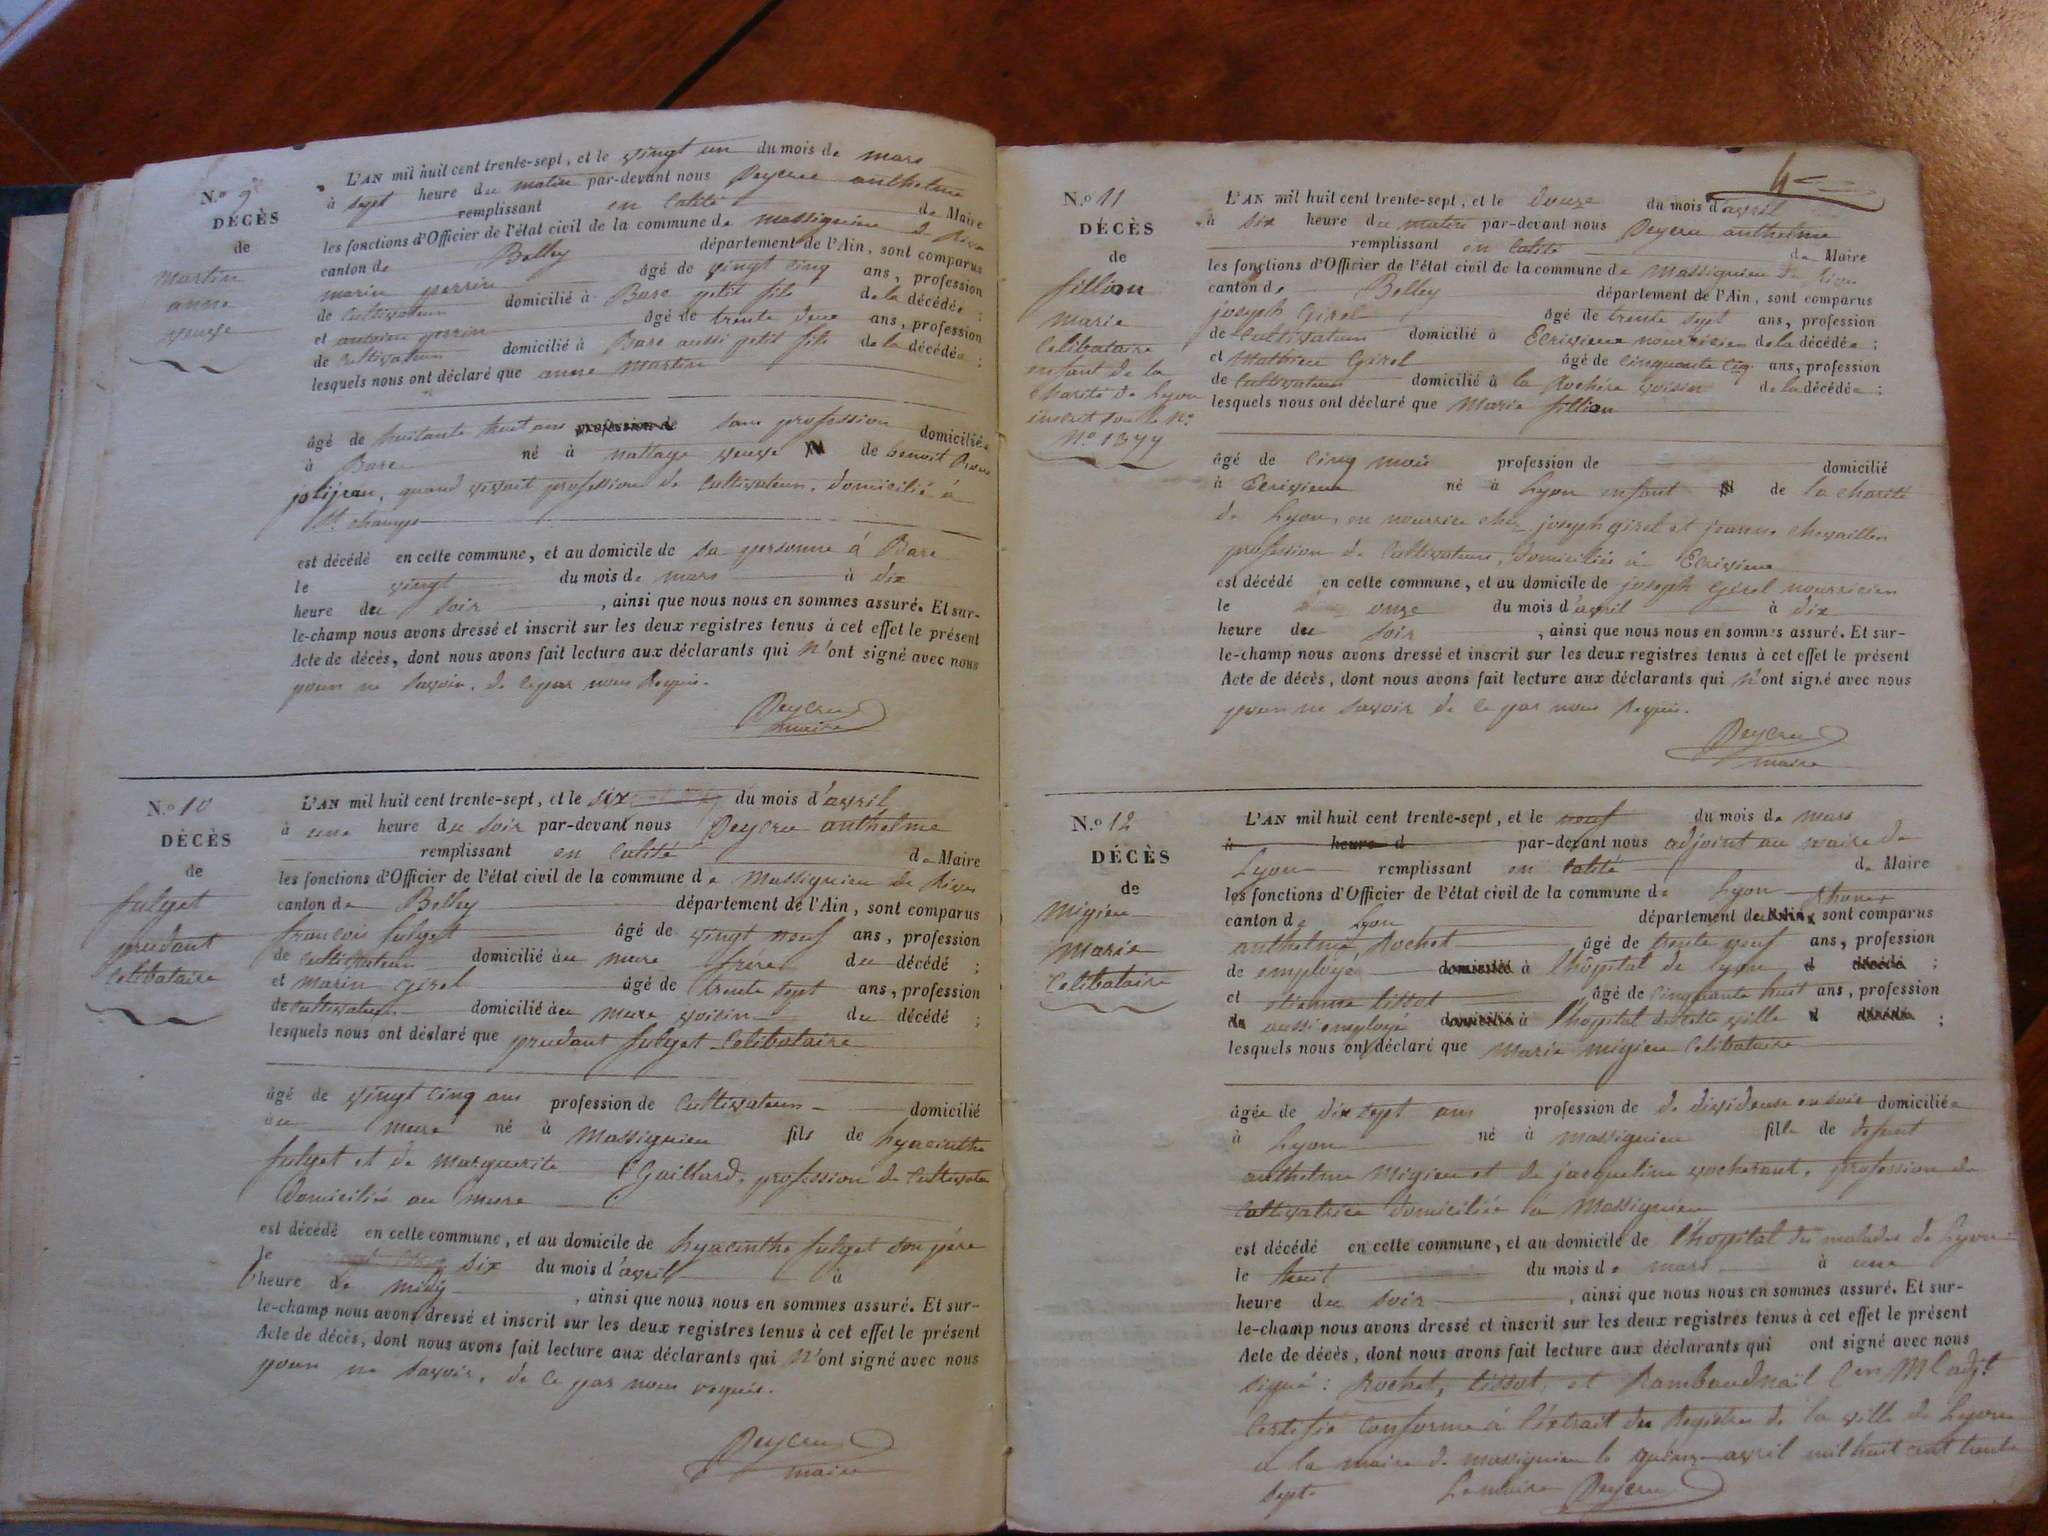 N.º 9
DÉCÈS
de
martin
anne
veuve
L'AN mil huit cent trente-sept, et le vingt un du mois de mars
à sept heure du matin par-devant nous Peycru anthelme
remplissant en calité de Maire
les fonctions d'Officier de l'état civil de la commune de massignieu de Rive
canton de Belley département de l'Ain, sont comparus
marin perrin âgé de vingt cinq ans, profession
de cultivateur domicilié à Bare petit fils de la décédée ;
et antoine perrin âgé de trente deux ans, profession
de cultivateur domicilié à Bare aussi petit fils de la décédée ;
lesquels nous ont déclaré que anne martin
âgé de huitante huit ans profession de sans profession domiciliée
à Bare né à nattage veuve de benoit
quand vivait profession de cultivateur, domicilié à
St. champs
est décédé en cette commune, et au domicile de sa personne à Bare
le vingt du mois de mars à dix
heure du soir, ainsi que nous nous en sommes assuré. Et sur-
le-champ nous avons dressé et inscrit sur les deux registres tenus à cet effet le présent
Acte de décès, dont nous avons fait lecture aux déclarants qui n'ont signé avec nous
pour ne savoir, de ce par nous Requis.
Peycru
maire
N.º 10
DÉCÈS
de
fulget
prudant
celibataire
L'AN mil huit cent trente-sept, et le six du mois d'avril
à une heure du soir par-devant nous Peycru anthelme
remplissant en calité de Maire
les fonctions d'Officier de l'état civil de la commune de Massignieu de Rives
canton de Belley département de l'Ain, sont comparus
françois fulget âgé de vingt neuf ans, profession
de cultivateur domicilié au mure frere du décédé ;
et marin girel âgé de trente sept ans, profession
de cultivateur domicilié au mure voisin du décédé ;
lesquels nous ont déclaré que prudant fulget celibataire
âgé de vingt cinq ans profession de cultivateur domicilié
au mure né à Massignieu fils de hyacinthe
fulget et de marguerite Gaillard, profession de cultivate
domiciliés au mure
est décédé en cette commune, et au domicile de hyacinthe fulget son père
le six du mois d'avril à
l'heure de midy, ainsi que nous nous en sommes assuré. Et sur-
le-champ nous avons dressé et inscrit sur les deux registres tenus à cet effet le présent
Acte de décès, dont nous avons fait lecture aux déclarants qui n'ont signé avec nous
pour ne savoir, de ce par nous requis.
Peycru
maire
N.º 11
DÉCÈS
de
fillion
marie
celibataire
enfant de la
charité de Lyon
inscrit sous le n.º
N.º 1377
L'AN mil huit cent trente-sept, et le douze du mois d'avril
à six heure du matin par-devant nous Peycru anthelme
remplissant en calité de Maire
les fonctions d'Officier de l'état civil de la commune de Massignieu de Rives
canton de Belley département de l'Ain, sont comparus
joseph Girel âgé de trente sept ans, profession
de cultivateur domicilié à Ecrivieux nourricier de la décédée ;
et Mathieu Girel âgé de cinquante cinq ans, profession
de cultivateur domicilié à la Rochére voisin de la décédée ;
lesquels nous ont déclaré que Marie fillion
âgé de cinq mois profession de domicilié
à Ecrivieux né à Lyon enfant de la charité
de Lyon, en nourrice chez joseph girel et jeanne chevaillin
profession de cultivateurs, domiciliés à Ecrivieux
est décédé en cette commune, et au domicile de joseph Girel nourricier
le onze du mois d'avril à dix
heure du soir, ainsi que nous nous en sommes assuré. Et sur-
le-champ nous avons dressé et inscrit sur les deux registres tenus à cet effet le présent
Acte de décès, dont nous avons fait lecture aux déclarants qui n'ont signé avec nous
pour ne savoir de ce par nous Requis.
Peycru
maire
N.º 12
DÉCÈS
de
Migieu
Marie
celibataire
L'AN mil huit cent trente-sept, et le neuf du mois de mars
à heure d par-devant nous adjoint au maire de
Lyon remplissant en calité de Maire
les fonctions d'Officier de l'état civil de la commune de Lyon
canton de Lyon département du Rhone sont comparus
anthelme Rochet âgé de trente neuf ans, profession
de employé domicilié à l'hôpital de lyon d décédé ;
et etienne tissot âgé de cinquante huit ans, profession
de aussi employé domicilié à l'hôpital de cette ville d décédé ;
lesquels nous ont déclaré que Marie migieu celibataire
âgée de dix sept ans profession de devideuse en soie domiciliée
à Lyon né à massignieu fille de defunt
anthelme Migieu et de jacqueline vocherant, profession de
cultivatrice domiciliée à Massignieu
est décédé en cette commune, et au domicile de l'hopital des malades de Lyon
le huit du mois de mars à une
heure du soir, ainsi que nous nous en sommes assuré. Et sur-
le-champ nous avons dressé et inscrit sur les deux registres tenus à cet effet le présent
Acte de décès, dont nous avons fait lecture aux déclarants qui ont signé avec nous
signé : Rochet, tissot, et adj.t
certifié conforme à l'extrait des Registres de la ville de Lyon
a la mairie de massignieu le quinze avril mil huit cent trente
sept. Le maire Peycru